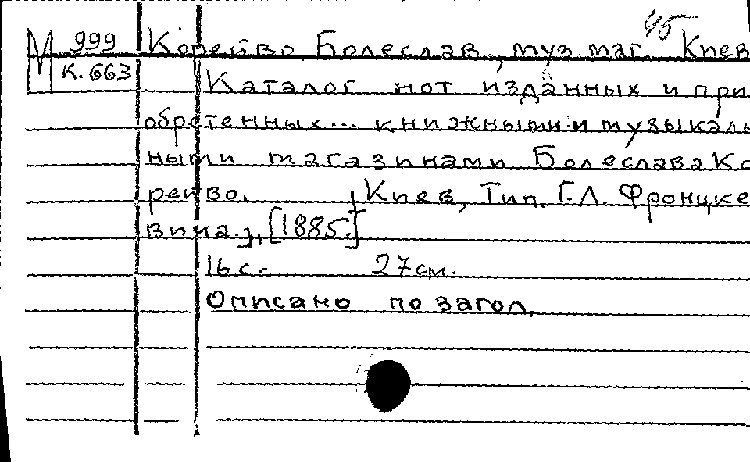 45
М 999 Корейво Болеслав, муз. маг. Киев
К. 663 Каталог нот изданных и при
обретенных... книжными и музыкаль
ными магазинами Болеслава Ко
рейво. [Киев, Тип. Г.Л. Фронцке
вича.], [1885.]
16 с. 27 см.
Описано по загол.